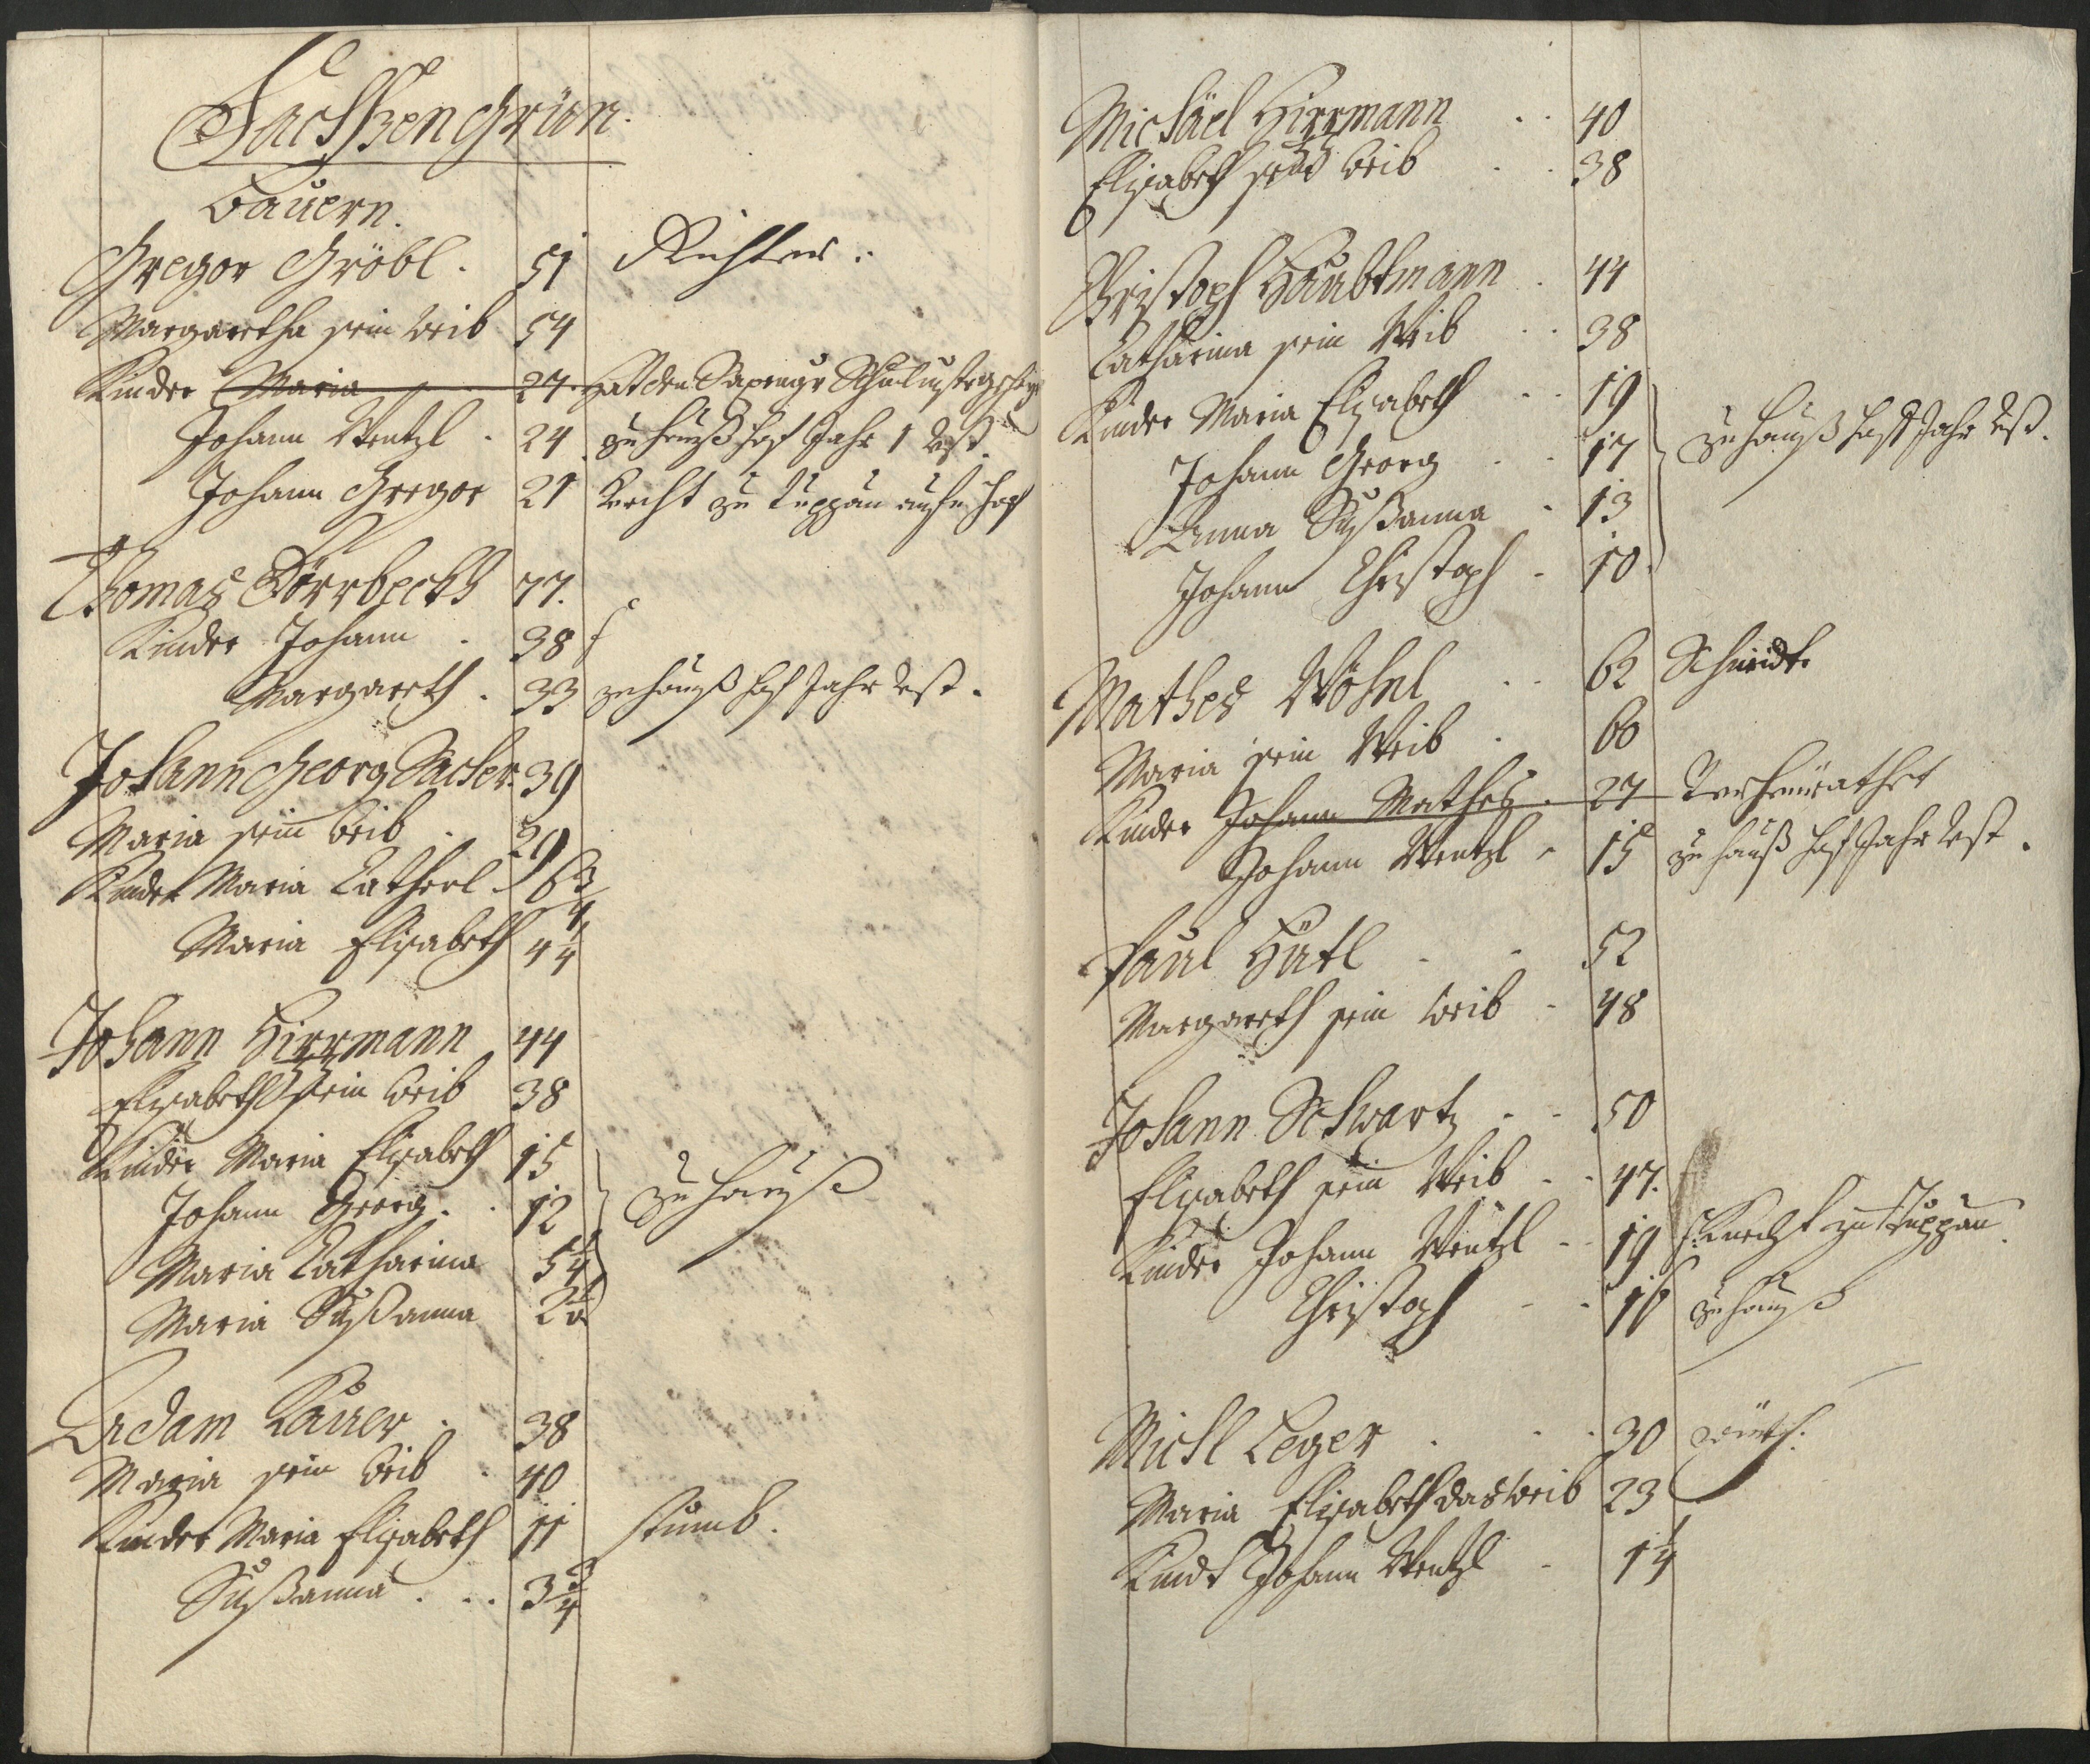 Sachsengrün.
Bauern.
Gregor Gröbl. 51 Richter.
Margaretha sein Weib 54
Kinder Maria 27. hat den
Johann Wentzl. 24 zu hauß hof Jahr 1 Rest.
Johann Gregor 21 Knecht zu Duppau
Thomas Dörrbeckh 77.
Kinder Johann. 38
Margareth. 33 zu hauß hof Jahr Rest.
Johann Georg Sacher. 39
Maria sein Weib. 29
Kinder Maria Catherl 6 3/4
Maria Elisabeth 4 1/4
Johann Hirrmann 44
Elisabeth sein Weib 38
Kinder Maria Elisabeth 15
Johann Georg. 12 zu hauß
Maria Catharina 5 1/4
Maria Sußanna
Adam Lauer. 38
Maria sein Weib. 40
Kinder Maria Elisabeth 11 stumb.
Sußanna... 3 3/4
Michäel Hirrmann.. 40
Elisabeth sein Weib.. 38
Christoph Haubtmann. 44
Catharina sein Weib.. 38
Kinder Maria Elisabeth.. 19
Johann Georg.. 17 zu hauß hof Jahr Rest.
Anna Sußanna. 13
Johann Christoph. 10.
Mathes Wöhnl.. 62 Schmidt.
Maria sein Weib. 60
Kinder Johann Mathes. 27 Verheurathet
Johann Wentzl. 15 zu hauß hof Jahr Rest.
Paul Hütl.. 52
Margareth sein Weib. 48
Johann Schwartz.. 50
Elisabeth sein Weib.. 47.
Kinder Johann Wentzl.. 19 Knecht zu Duppau.
Christoph.. 16 zu hauß
Michl Leger... 30
Maria Elisabeth das Weib 23
Kindt Johann Wentzl. 1 1/4